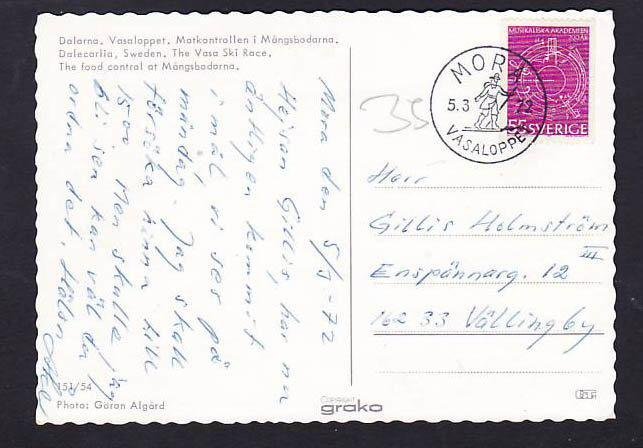 Dalarna. Vasaloppet. Matkontrollen i Mångsbodarna.
Dalecarlia, Sweden. The Vasa Ski Race.
The food control at Mångsbodarna.
Mora den 5/3 -72
Hejsan Gillis, har nu
än tigen kommit
i mål vi ses på
måndag. Jag skall
försöka hinna till
1500 Men skulle jag
bli sen kan väl du
ordna det. Hälsn
151/54
Photo: Göran Algård
COPYRIGHT
grako
MUSIKALISKA AKADEMIEN
200 ÅR
55 SVERIGE
MORA
5.3 72
VASALOPPET
35
Herr
Gillis Holmström
Enspännarg. 12 III
162 33 Vällingby